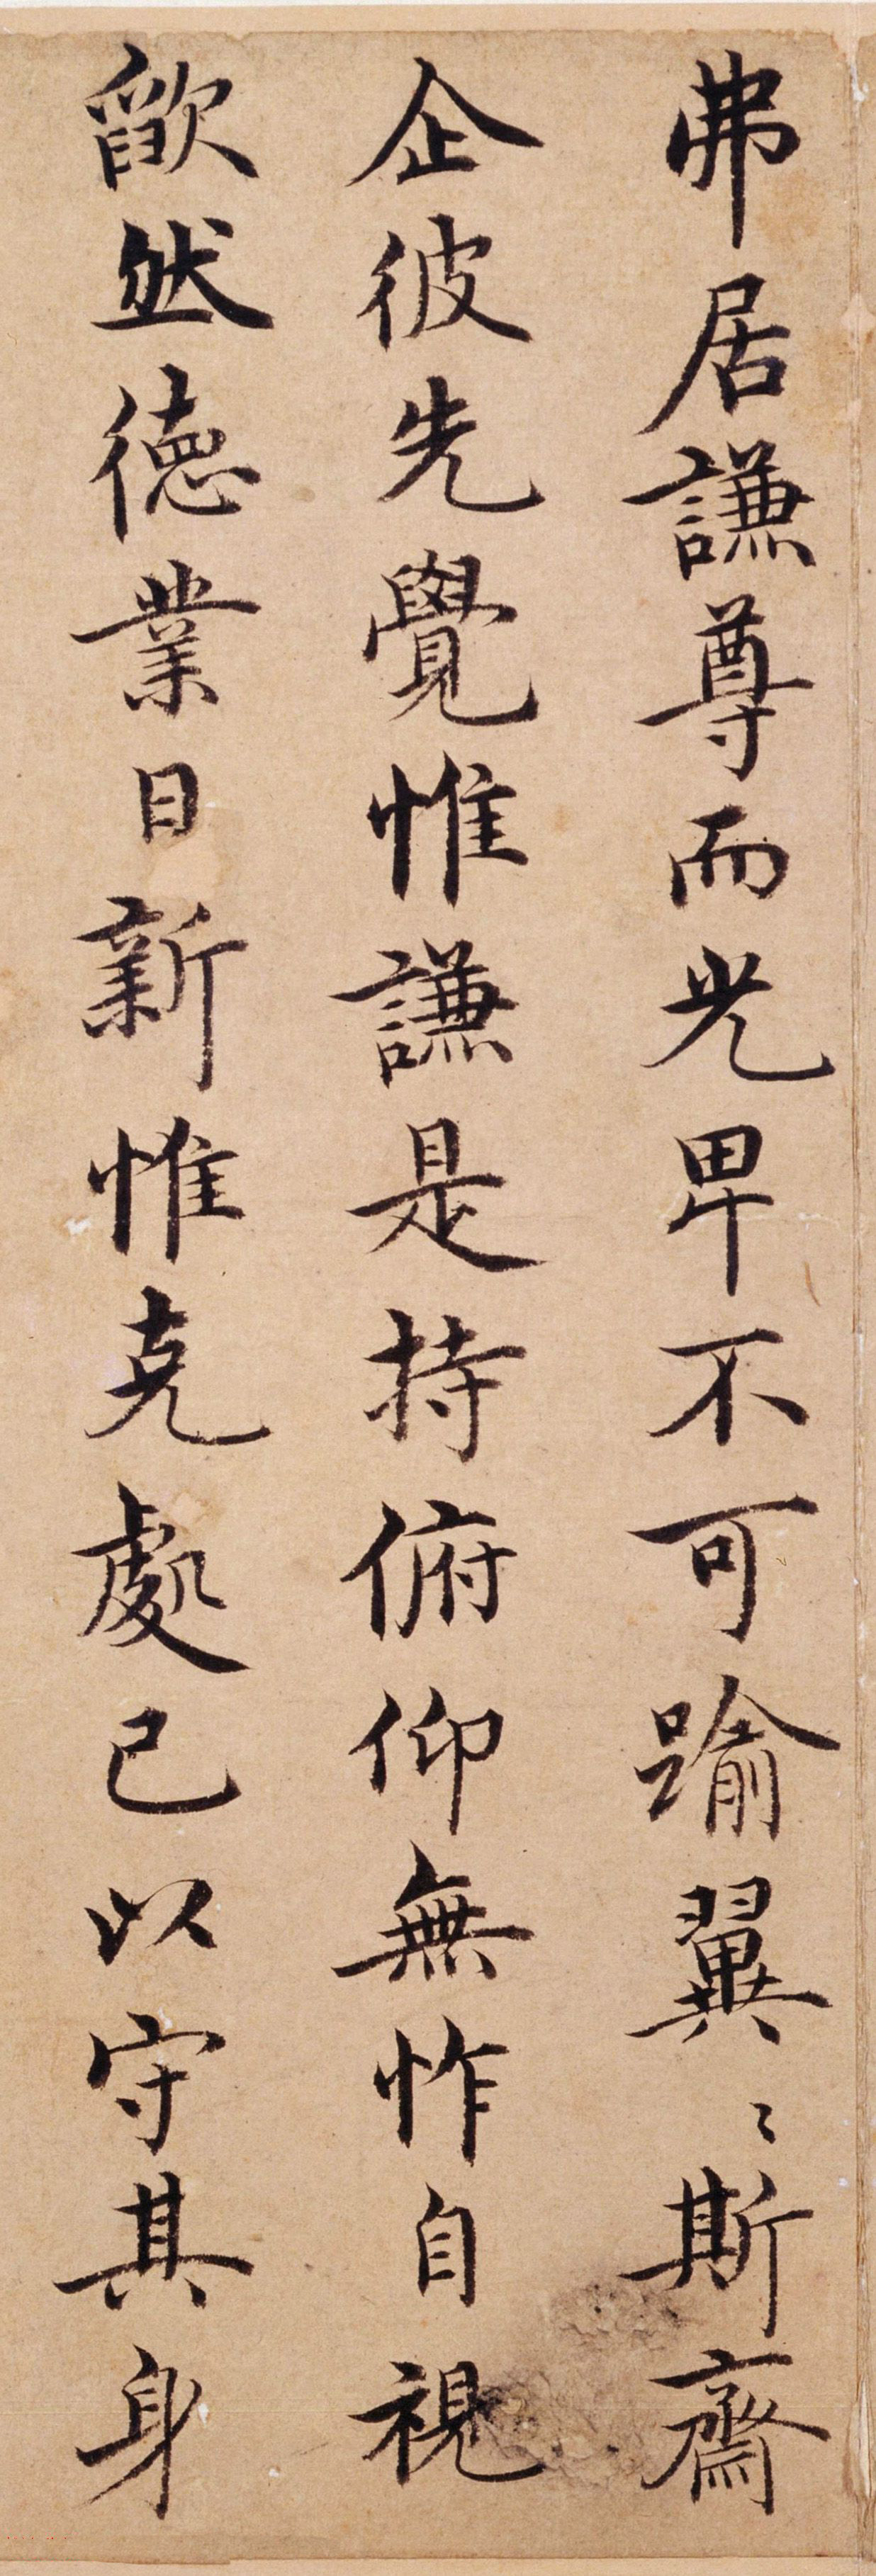 弗居謙尊而光卑不可踰翼〻斯齋
企彼先覺惟謙是持俯仰無怍自視
欿然德業日新惟克處已以守其身